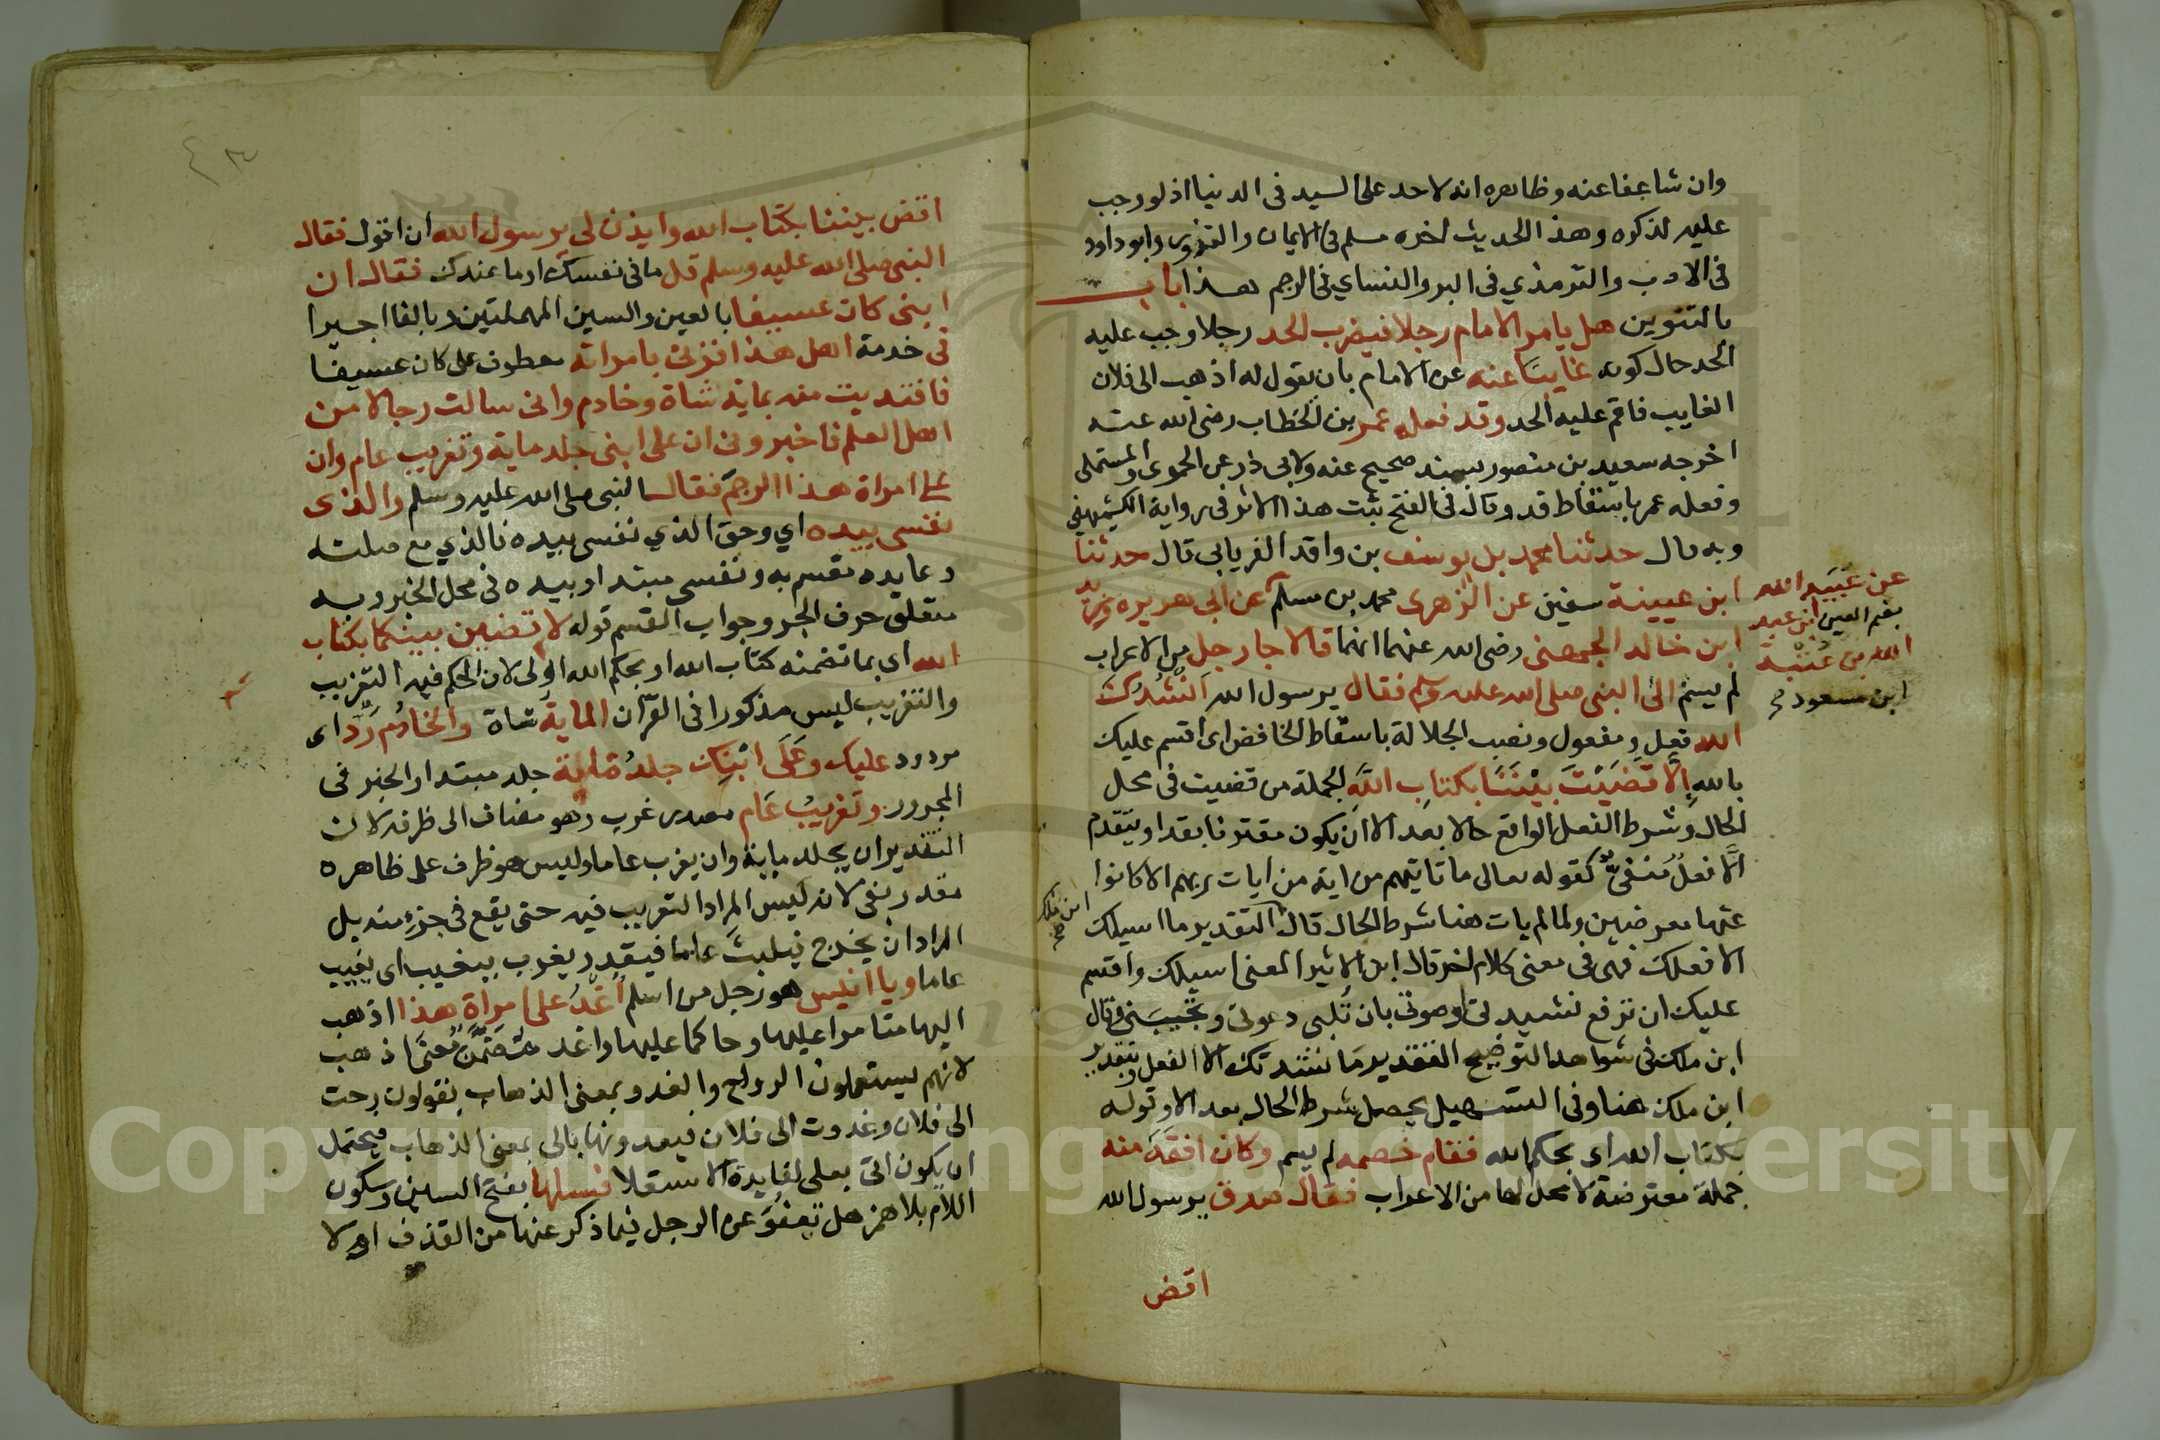 وان شا عفا عنه وظاهره انه لا حد على السيد فى الدنيا اذ لو وجب
عليه لذكره وهذا الحديث اخره مسلم فى الايمان والنذور وابو داود
فى الادب والترمذي فى البر والنساي فى الرجم هذا باب
بالتنوين هل يامر الامام رجلا فيضرب الحد رجلا وجب عليه
الحد حال كونه غايبا عنه عن الامام بان يقول له اذهب الى فلان
الغايب فاقم عليه الحد وقد فعله عمر بن الخطاب رضى الله عنه
اخرجه سعيد بن منصور بسند صحيح عنه ولابى ذر عن الحموى والمستملى
وفعله عمر باسقاط قد وقال فى الفتح ثبت هذا الاثر فى رواية الكشميهنى
وبه قال حدثنا محمد بل يوسف بن واقد الفريابى قال حدثنا
ابن عيينة سفين عن الزهرى محمد بن مسلم عن ابى هريره وزيد
ابن خالد الجهنى رضى الله عنهما انهما قالا جا رجل من الاعراب
لم يسم الى النبى صلى الله عليه وسلم فقال يرسول الله انشدك
الله فعل ومفعول ونصب الجلالة باسقاط الخافض اى اقسم عليك
بالله الا قضيت بيننا بكتاب الله الجملة من قضيت فى محل
الحال وشرط الفعل الواقع حالا بعد الا ان يكون مقترنا بقد او يتقدم
الا فعل منفى كقوله تعالى ما تاتيهم من اية من ايات ربهم الا كانوا
عنها معرضين ولما لم يات هنا شرط الحال قال التقدير ما اسيلك
الا فعلك فهى فى معنى كلام اخر قال ابن الاثير المعنى اسيلك واقسم
عليك ان ترفع نشيدتى وصوتى بان تلبى دعوتى وتجيبنى وقال
ابن ملك فى شواهد التوضيح التقدير ما نشدتك الا الفعل وبتقدير
ابن ملك هنا وفى التسهيل يحصل شرط الحال بعد الا وقوله
بكتاب الله اى بحكم الله فقام خصمه لم يسم وكان افقه منه
جملة معترضة لا محل لها من الاعراب فقال صدق يرسول الله
اقض
عن عبيد الله
بضم العين ابن عبد
الله بن عتبة
ابن مسعود
ابن ملك
اقض بيننا بكتاب الله وايذن لى يرسول الله ان اقول فقال
النبى صلى الله عليه وسلم قل ما فى نفسك او ما عندك فقال ان
ابنى كان عسيفا بالعين والسين المهملتين وبالفا اجيرا
فى خدمة اهل هذا فزنى بامراته معطوف على كان عسيفا
فافتديت منه بماية شاة وخادم وانى سالت رجالا من
اهل العلم فاخبرونى ان على ابنى جلد ماية وتغريب عام وان
على امراة هذا الرجم فقال النبى صلى الله عليه وسلم والذى
نفسى بيده اي وحق الذي نفسى بيده فالذي مع صلته
وعايده مقسم به ونفسى مبتدا وبيده فى محل الخبر وبه
متعلق حرف الجر وجواب القسم قوله لاقضين بينكما بكتاب
الله اى بما تضمنه كتاب الله او بحكم الله اولى لان الحكم فيه التغريب
والتغريب ليس مذكورا فى القران الماية شاة والخادم رد اى
مردود عليك وعلى ابنك جلد ماية جلد مبتدا والخبر فى
المجرور وتغريب عام مصدر غرب وهو مضاف الى ظرفه لان
التقدير ان يجلد ماية وان يغرب عاما وليس هو ظرف على ظاهره
مقدر بفى لانه ليس المراد التغريب فيه حتى يقع فى جزء منه بل
المراد ان يخرج فيلبث عاما فيقدر يغرب بيغيب اى يغيب
عاما ويا انيس هو رجل من اسلم اغد على امراة هذا اذهب
اليها متامرا عليها وحاكما عليها واغد مضمن معنى اذهب
لانهم يستعملون الرواح والغدو بمعنى الذهاب يقولون رحت
الى فلان وغدوت الى فلان فيعدونها بالى بمعنى الذهاب فيحتمل
ان يكون اتى بعلى لفايدة الاستعلا فسلها بفتح السين وسكون
اللام بلا همز هل تعفو عن الرجل فيما ذكر عنها من القذف او لا
Copyright © King Saud University